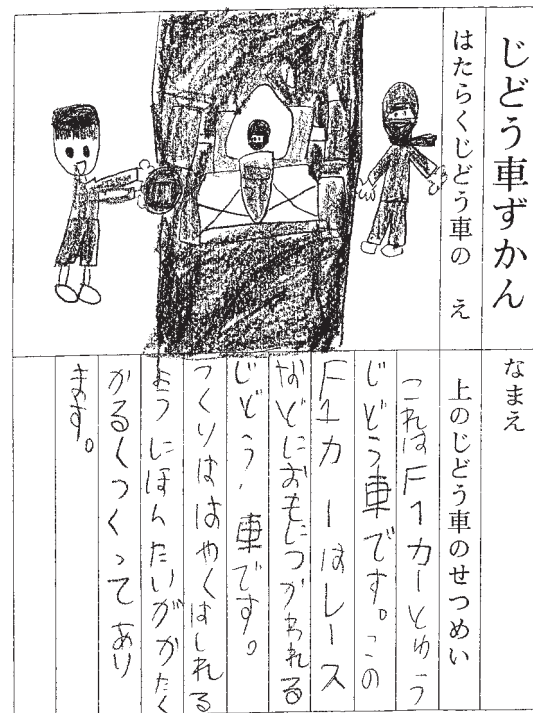 じどう車ずかん
はたらくじどう車の　え
なまえ
上のじどう車のせつめい
これはF1カーとゆう
じどう車です。この
F1カーはレース
などにおもにつかわれる
じどう車です。
つくりははやくはしれる
ようにほんたいがかたく
かるくつくってあり
ます。